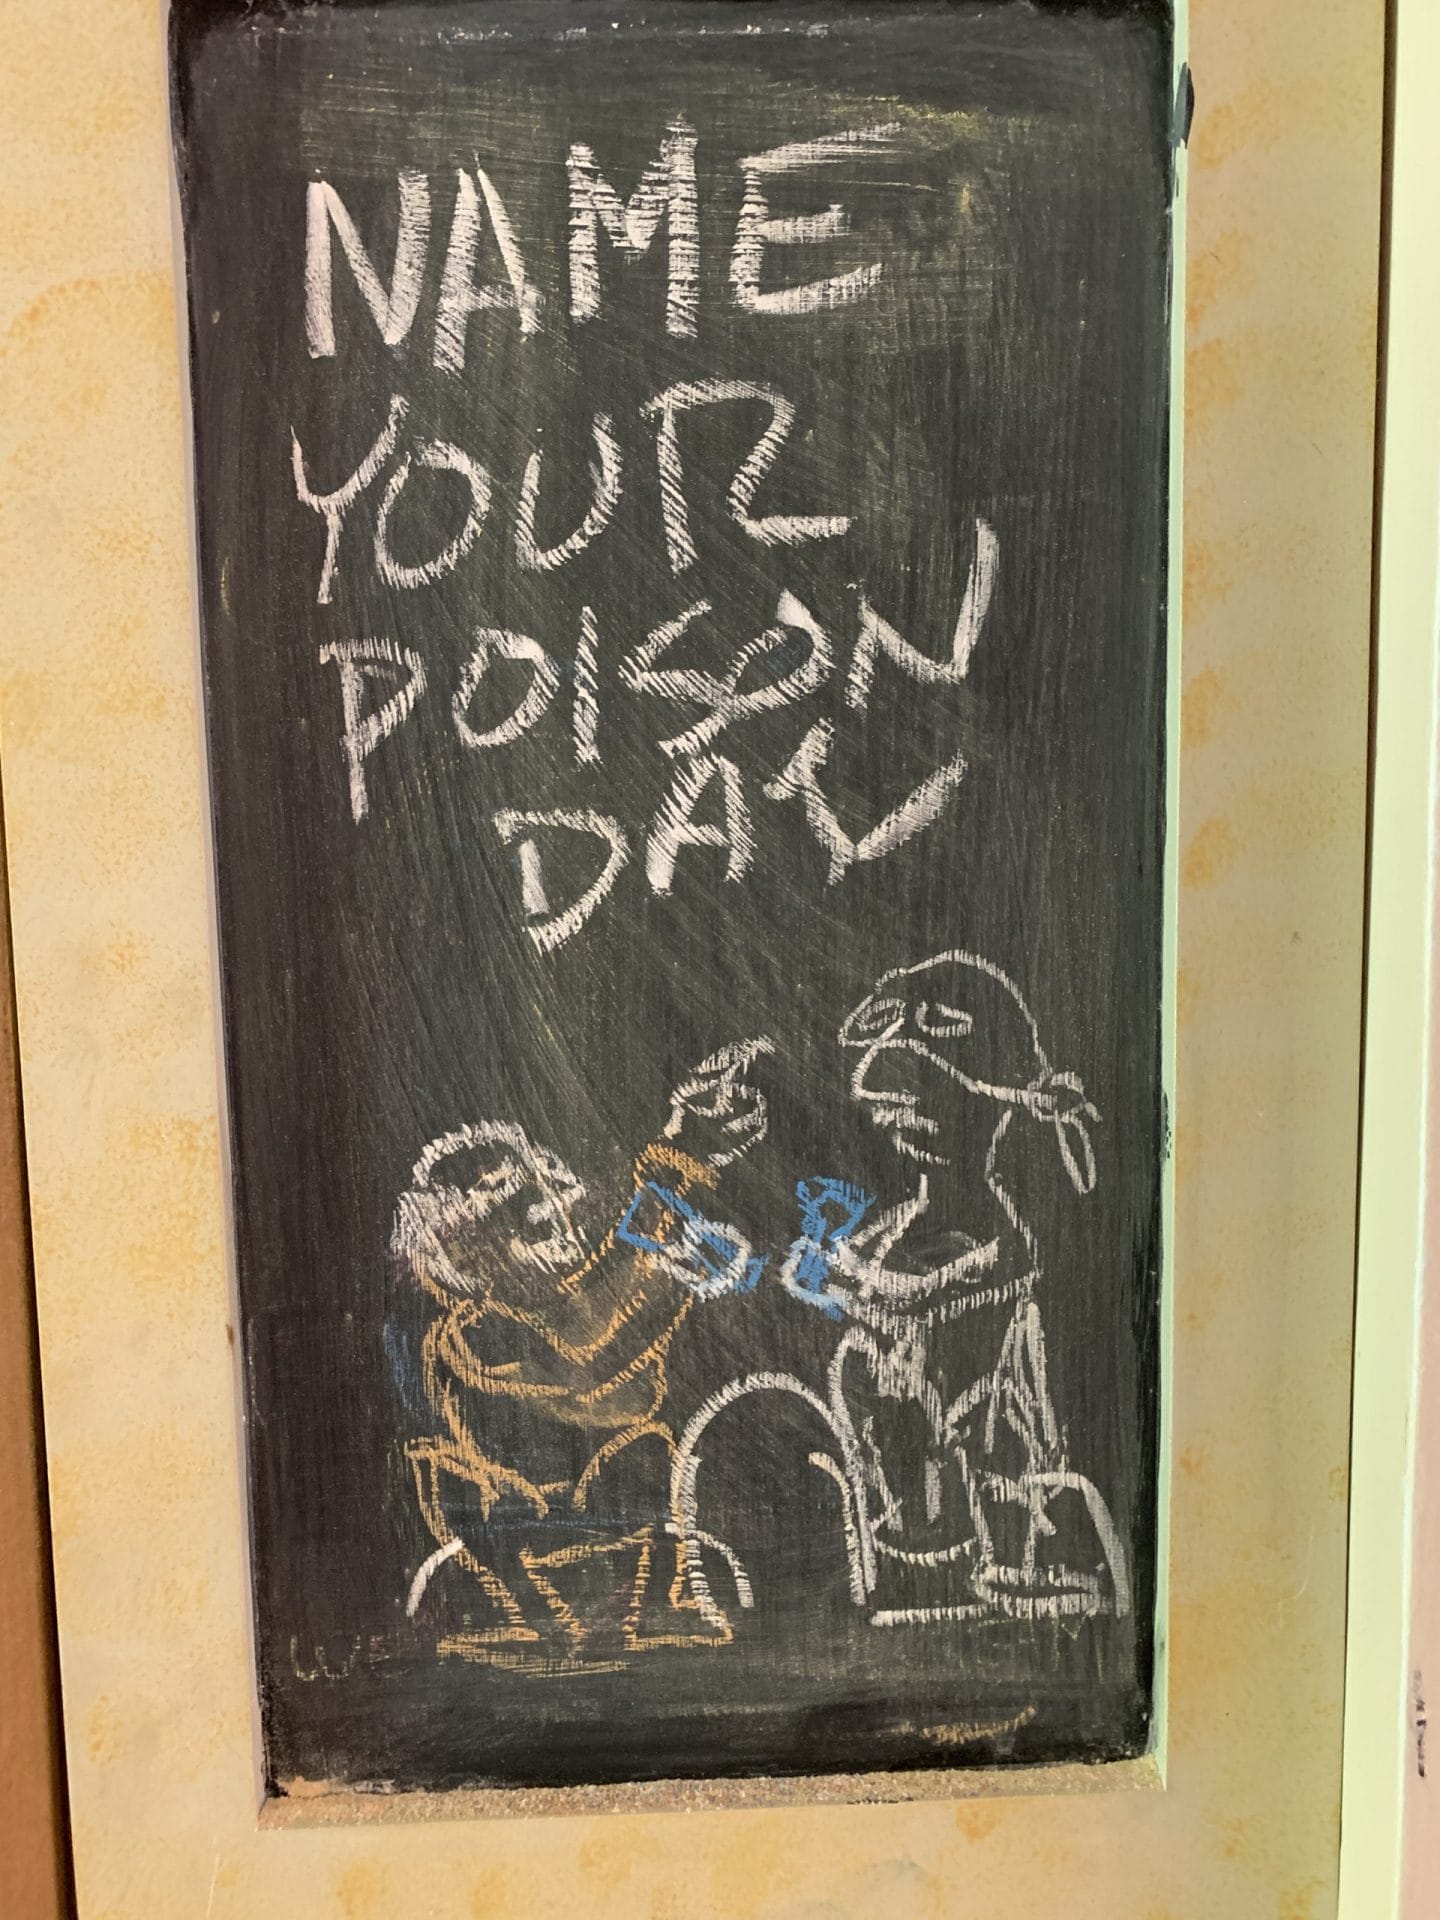 NAME
YOUR
POISON
DAY